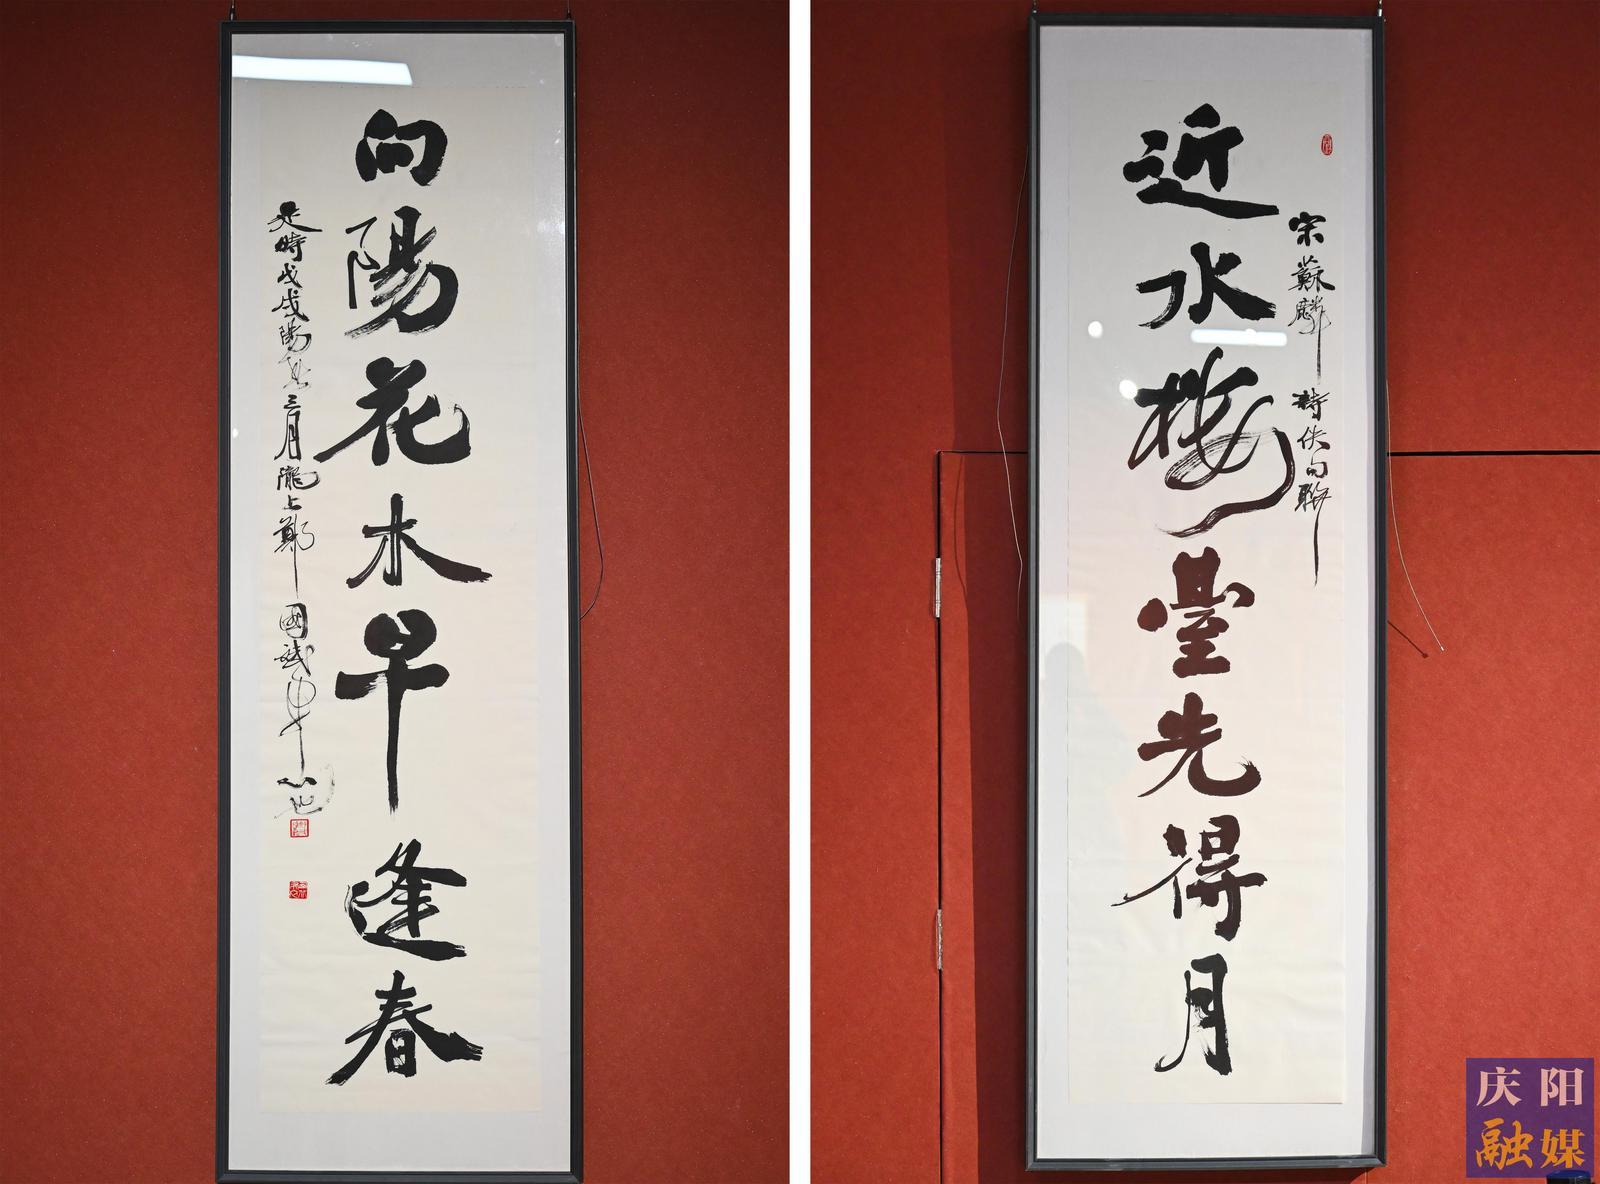 近水楼臺先得月
宋蘇麟詩佚句聯
向陽花木早逢春
是時戊戌陽春三月隴上鄭國
庆阳
融媒